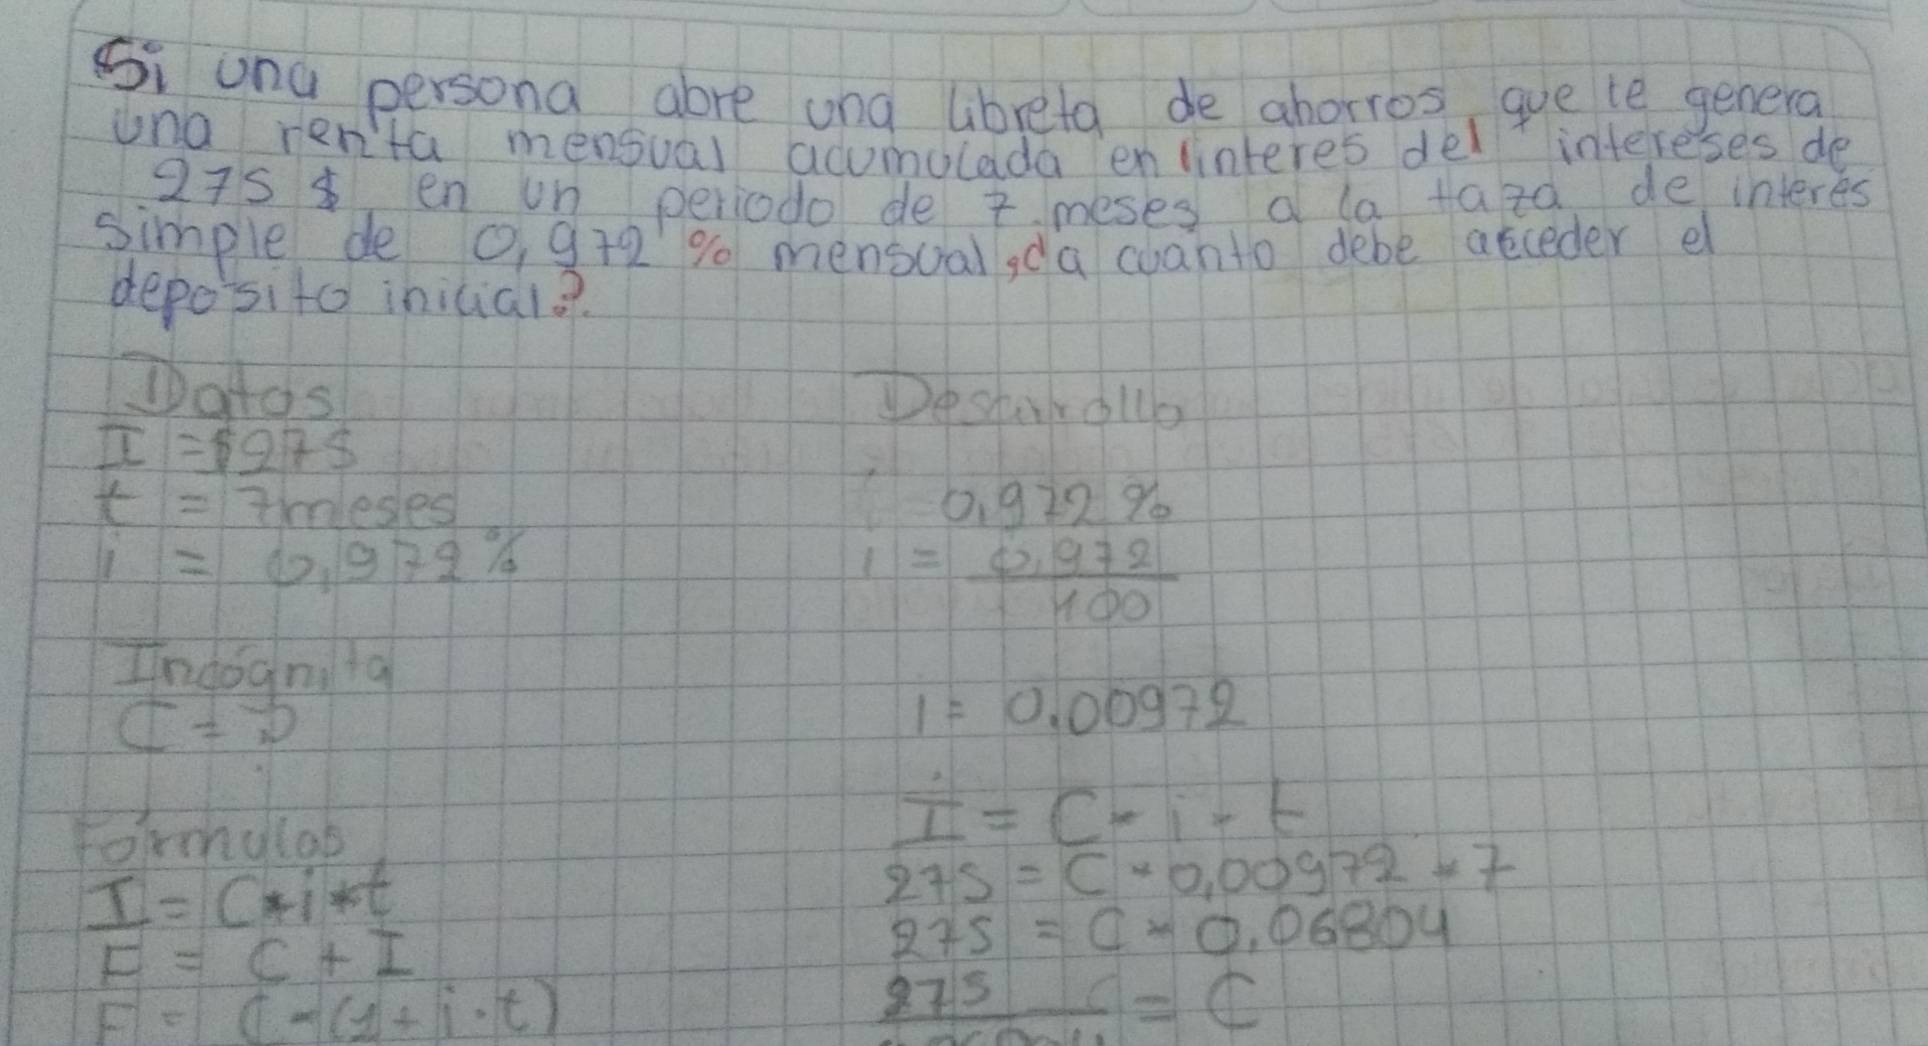 Si una persona abre una libreta de ahorros, que le genera
una renta mensual acumulada en interes del intereses de
275 $ en un periodo de 7 meses a la taza de interés
simple de 0,972 % mensual, da cuanto debe acceder el
deposito inicial?.
Datos
I = $275
t = 7 meses
i = 0,972%
Incógnita
C = ?
Formulas
I = C * i * t
F = C + I
F = C - (1 + i . t)
Desarrollo
0,972 %
i = 0,972
100
i = 0,00972
I = C - i - t
275 = C - 0,00972 - 7
275 = C - 0,06804
275 = C